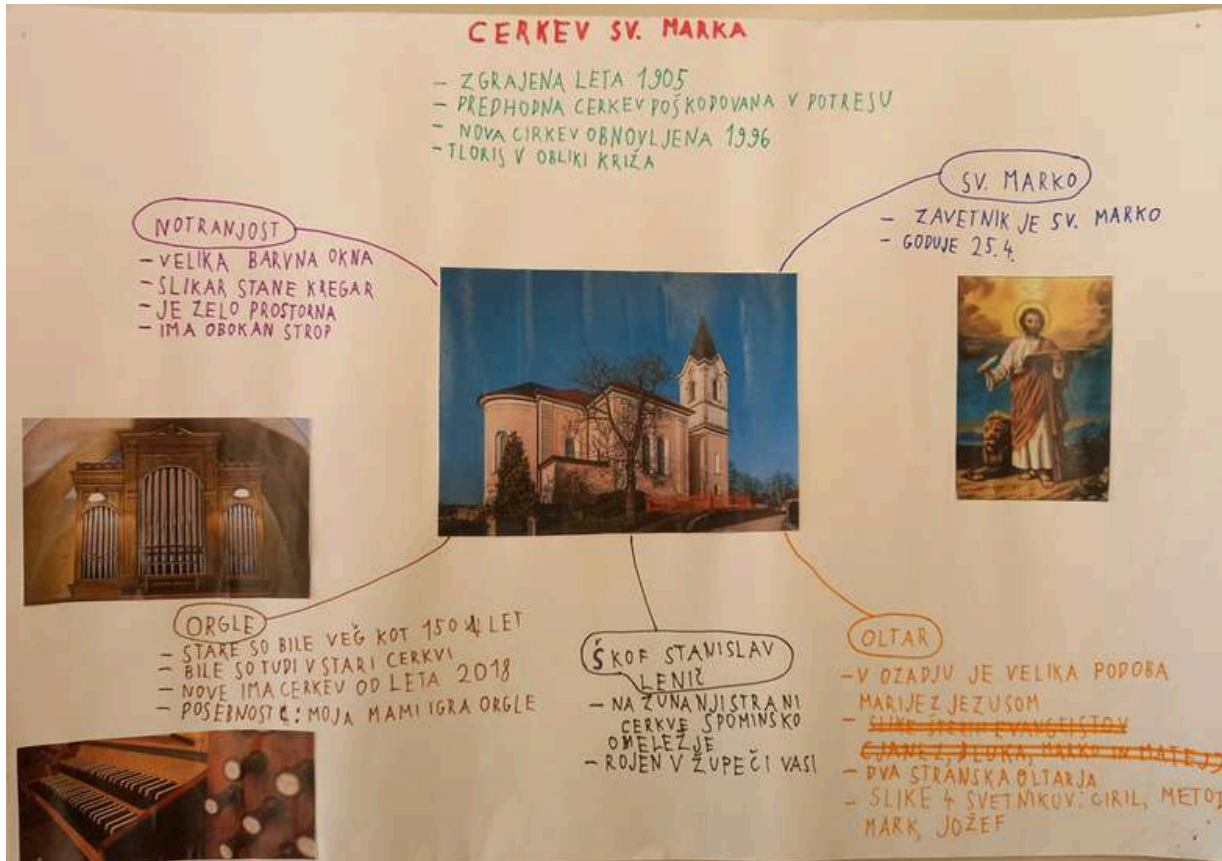 CERKEV SV. MARKA
- ZGRAJENA LETA 1905
- PREDHODNA CERKEV POŠKODOVANA V POTRESU
- NOVA CIRKEV OBNOVLJENA 1996
- TLORIS V OBLIKI KRIŽA
NOTRANJOST
- VELIKA BARVNA OKNA
- SLIKAR STANE KREGAR
- JE ZELO PROSTORNA
- IMA OBOKAN STROP
SV. MARKO
- ZAVETNIK JE SV. MARKO
- GODUJE 25.4.
ORGLE
- STARE SO BILE VEČ KOT 150 LET
- BILE SO TUDI V STARI CERKVI
- NOVE IMA CERKEV OD LETA 2018
- POSEBNOST: MOJA MAMI IGRA ORGLE
ŠKOF STANISLAV
LENIČ
- NA ZUNANJI STRANI
CERKVE SPOMINSKO
OBELEŽJE
- ROJEN V ŽUPEČI VASI
OLTAR
- V OZADJU JE VELIKA PODOBA
MARIJE Z JEZUSOM
- SLIKE ŠTIRIH EVANGELISTOV
LUKA, MARKO IN MATEJ
- DVA STRANSKA OLTARJA
- SLIKE 4 SVETNIKOV: CIRIL, METOD
MARK, JOŽEF